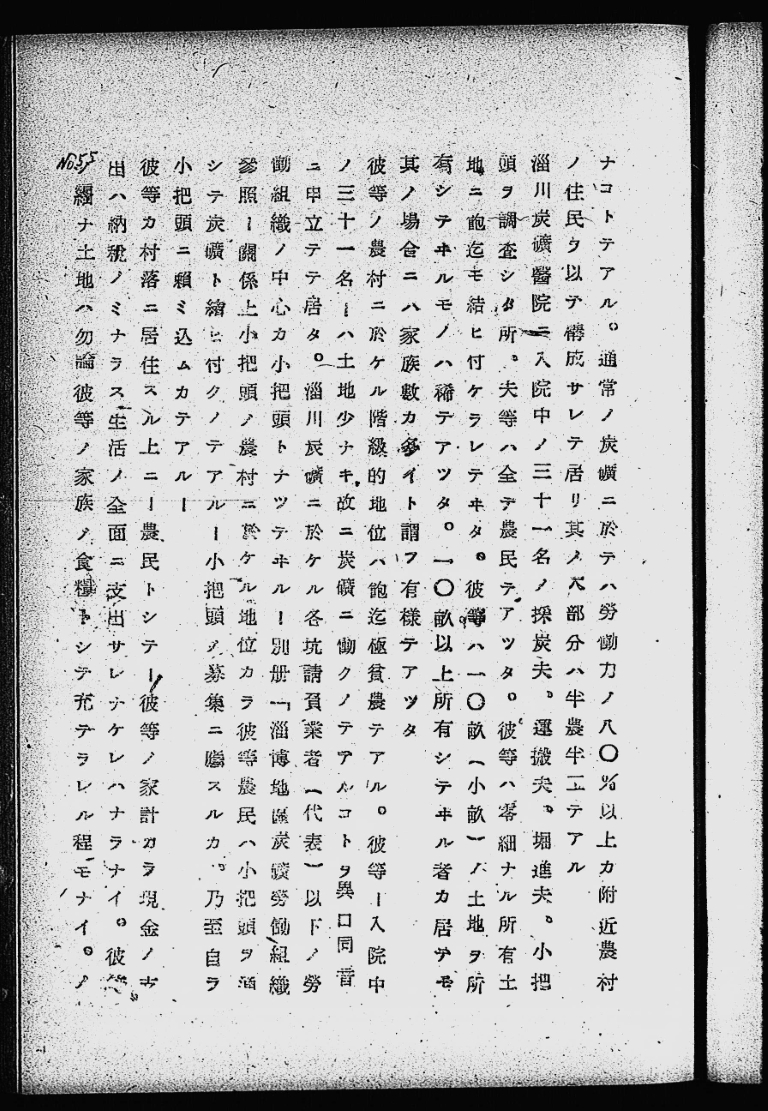 ナコトテアル。通常ノ炭礦ニ於テハ勞働力ノ八〇%以上カ附近農村
ノ住民ヲ以テ構成サレテ居リ其ノ大部分ハ半農半工テアル
淄川炭礦醫院ニ入院中ノ三十一名ノ採炭夫、運搬夫、堀進夫、小把
頭ヲ調査シタ所、夫等ハ全テ農民テアツタ。彼等ハ零細ナル所有土
地ニ飽迄モ結ヒ付ケラレテヰタ。彼等ハ一〇畝(小畝)ノ土地ヲ所
有シテヰルモノハ稀テアツタ。一〇畝以上所有シテヰル者カ居テモ
其ノ場合ニハ家族數カ多イト謂フ有樣テアツタ
彼等ノ農村ニ於ケル階級的地位ハ飽迄極貧農テアル。彼等ー入院中
ノ三十一名ーハ土地少ナキ故ニ炭礦ニ働クノテアルコトヲ異口同音
ニ申立テテ居タ。淄川炭礦ニ於ケル各坑請負業者(代表)以下ノ勞
働組織ノ中心カ小把頭トナツテヰルー別册「淄博地區炭礦勞働組織
參照ー關係上小把頭ノ農村ニ於ケル地位カラ彼等農民ハ小把頭ヲ通
シテ炭礦ト結ヒ付クノテアルー小把頭ノ募集ニ應スルカ、乃至自ラ
小把頭ニ賴ミ込ムカテアルー
彼等カ村落ニ居住スル上ニー農民トシテー彼等ノ家計カラ現金ノ支
出ハ納稅ノミナラス生活ノ全面ニ支出サレナケレハナラナイ。彼等
ノ土地ハ勿論彼等ノ家族ノ食糧トシテ充テラレル程モナイ。ノ
No.55